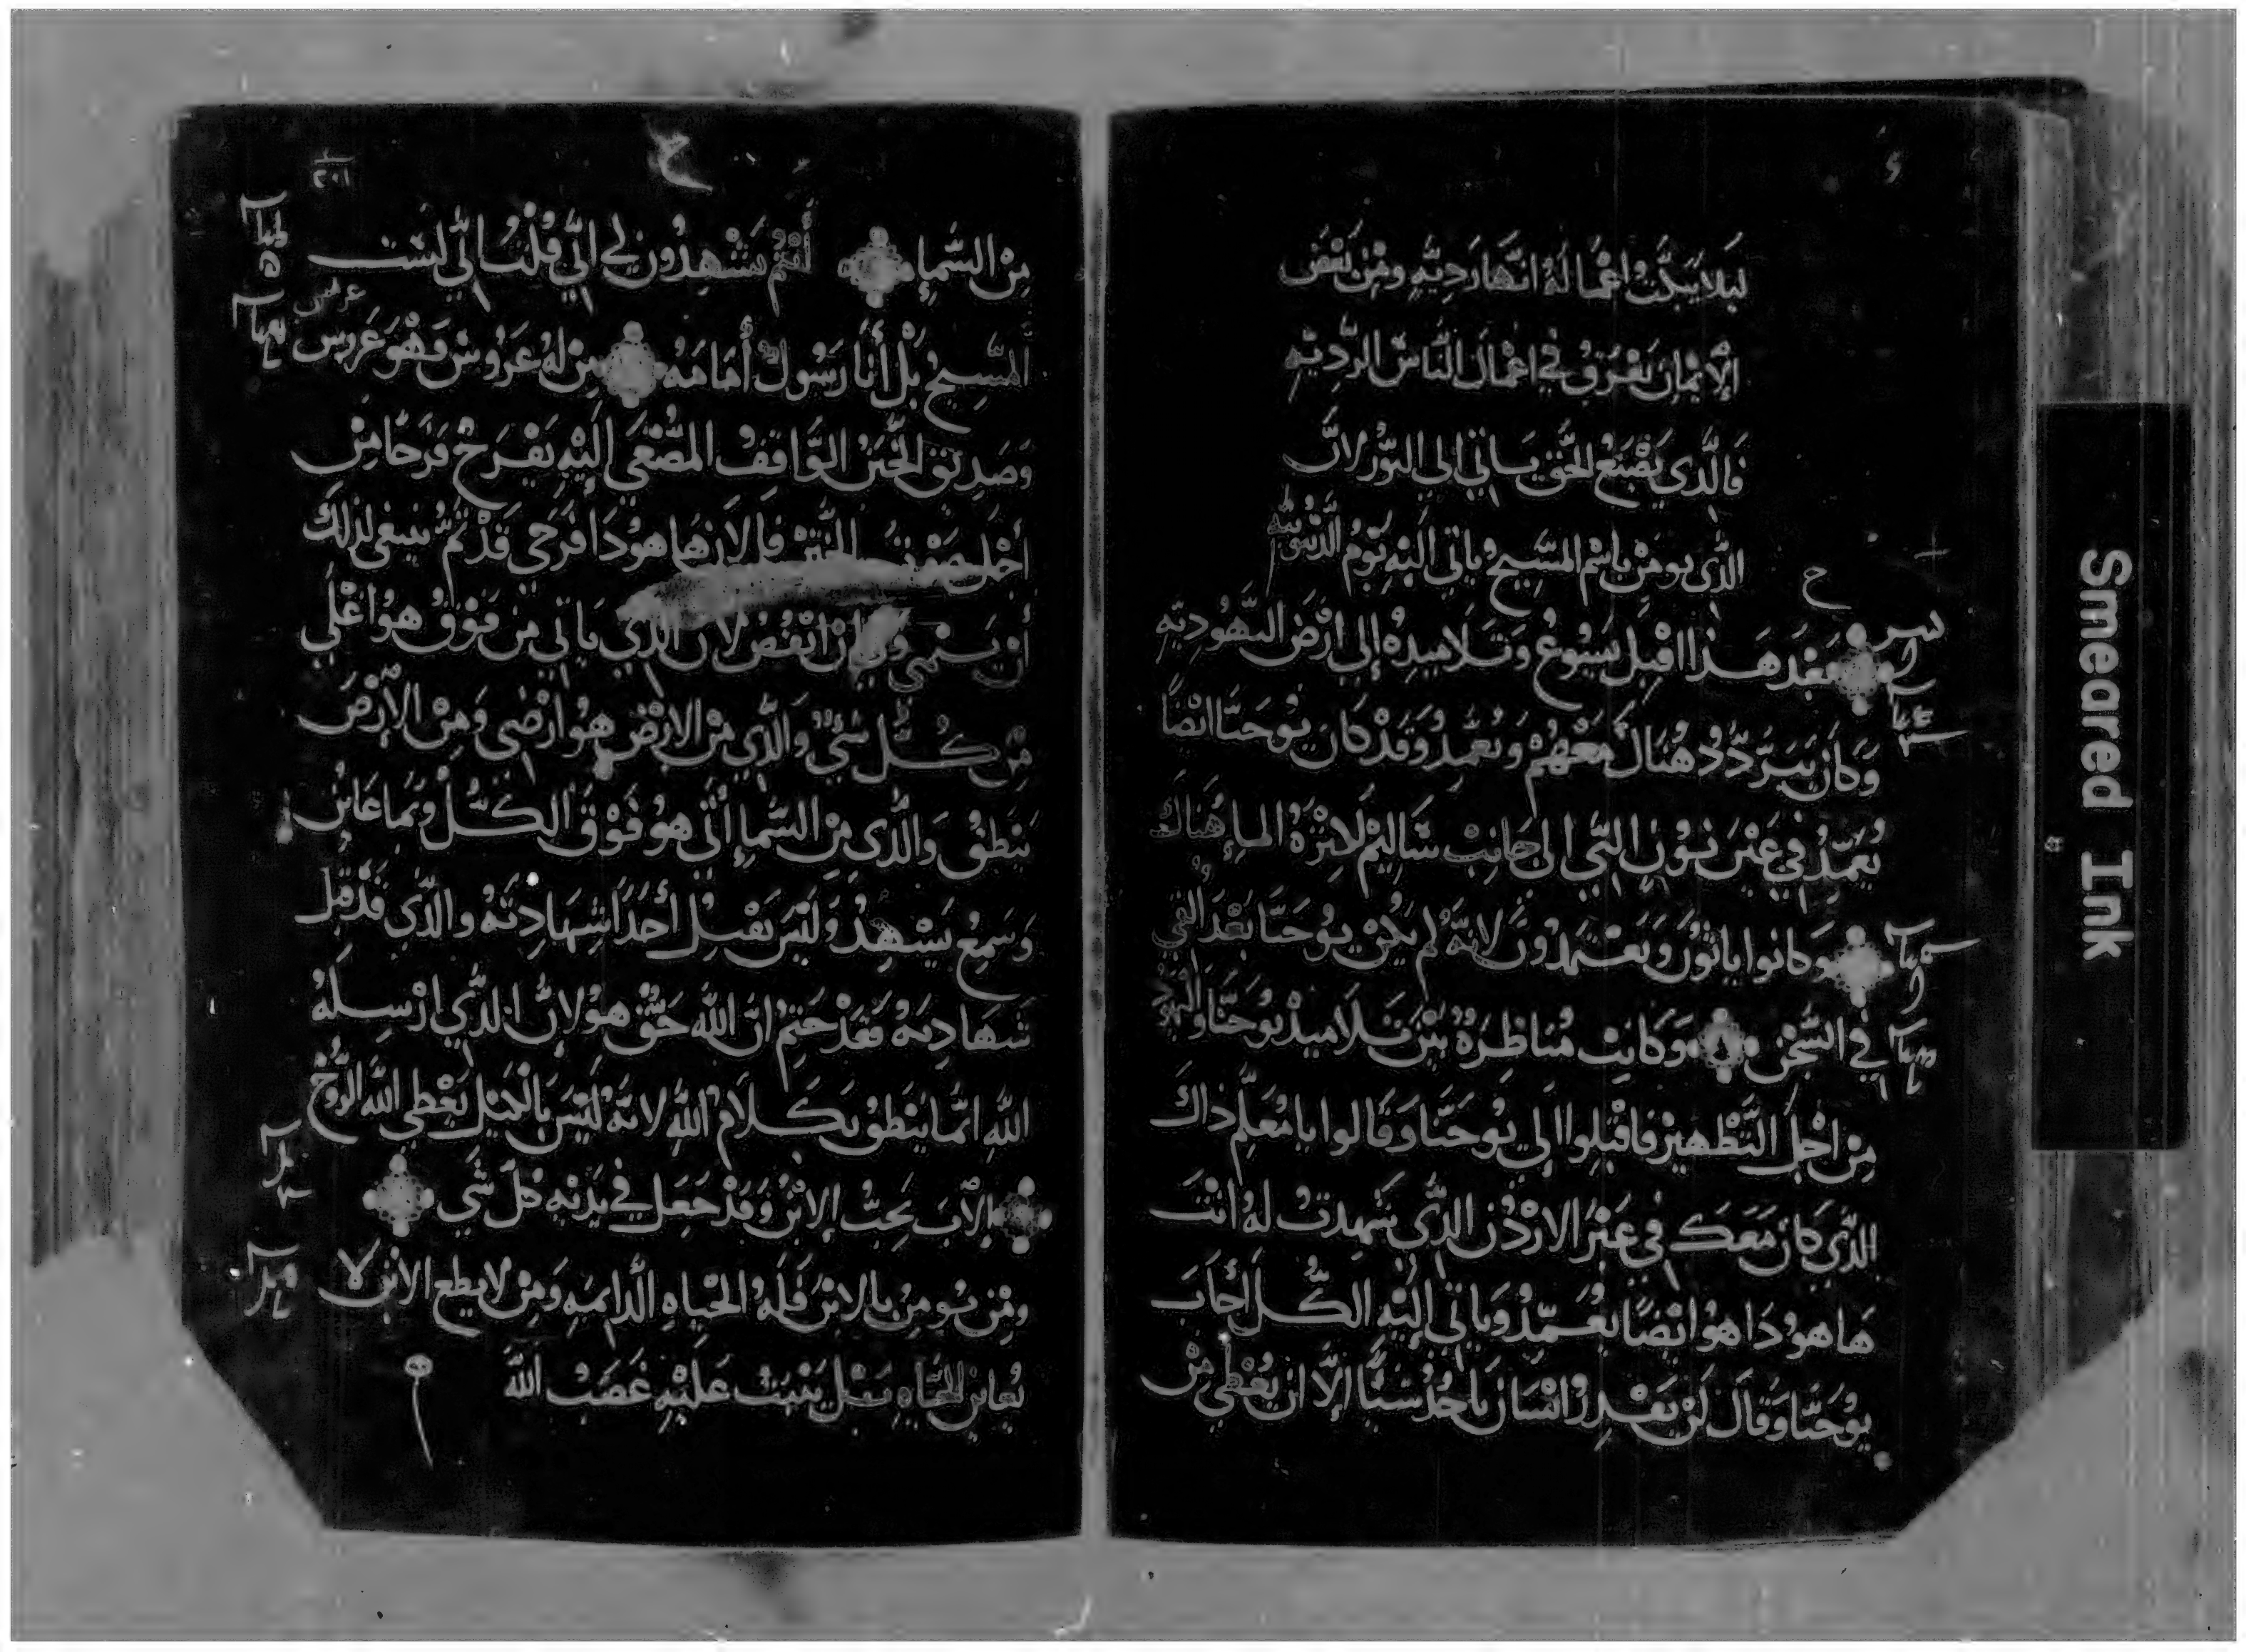 ليلا يبكت اعماله انها رديه ومن بغض
الإيمان يغرق في اعمال الناس الرديه
فالذي يصنع الحق ياتي الي النور لان
الذي يومن باسم المسيح ياتي اليه يوم الدينونه
بعد هذا اقبل يسوع وتلاميذه إلى ارض اليهوديه
وكان يتردد هناك معهم ويعمد وقد كان يوحنا ايضا
يعمد في عين نون التي الى جانب ساليم لكثرة الماء هناك
وكانوا ياتون ويعتمدون لانه لم يكن يوحنا بعد القي
في السجن وكانت مناظرة بين تلاميذ يوحنا واليهود
من اجل التطهير فاقبلوا الي يوحنا وقالوا يا معلم ذاك
الذي كان معك في عبر الاردن الذي شهدت له انت
ها هو ذا هو ايضا يعمد وياتي إليه الكل أجاب
يوحنا وقال لن يقدر انسان ياخذ شيا إلا ان يعطي من
من السماء أنتم تشهدون لي اني قلت اني لست
المسيح بل أنا رسول أمامه من له عروس فهو عروس
وصديق الختن الواقف المصغي إليه يفرح فرحا من
أجل صوت الختن فالان ها هو ذا فرحي قد تم ينبغي لذلك
أن ينمي ولي ان انقص لان الذي ياتي من فوق هو اعلي
من كل شي والذي من الارض هو ارضي ومن الارض
ينطق والذي من السماء أتي هو فوق الكل وبما عاين
وسمع يشهد وليس يقبل أحدا شهادته والذي قد قبل
شهادته فقد ختم ان الله حق هو لان الذي ارسله
الله انما ينطق بكلام الله لانه ليس بالكيل يعطي الله الروح
الآب يحب الابن وقد جعل في يديه كل شي
ومن يومن بالابن فله الحياه الدايمه ومن لا يطع الابن لا
يعاين الحياه بل يثبت عليه غضب الله
Smeared Ink